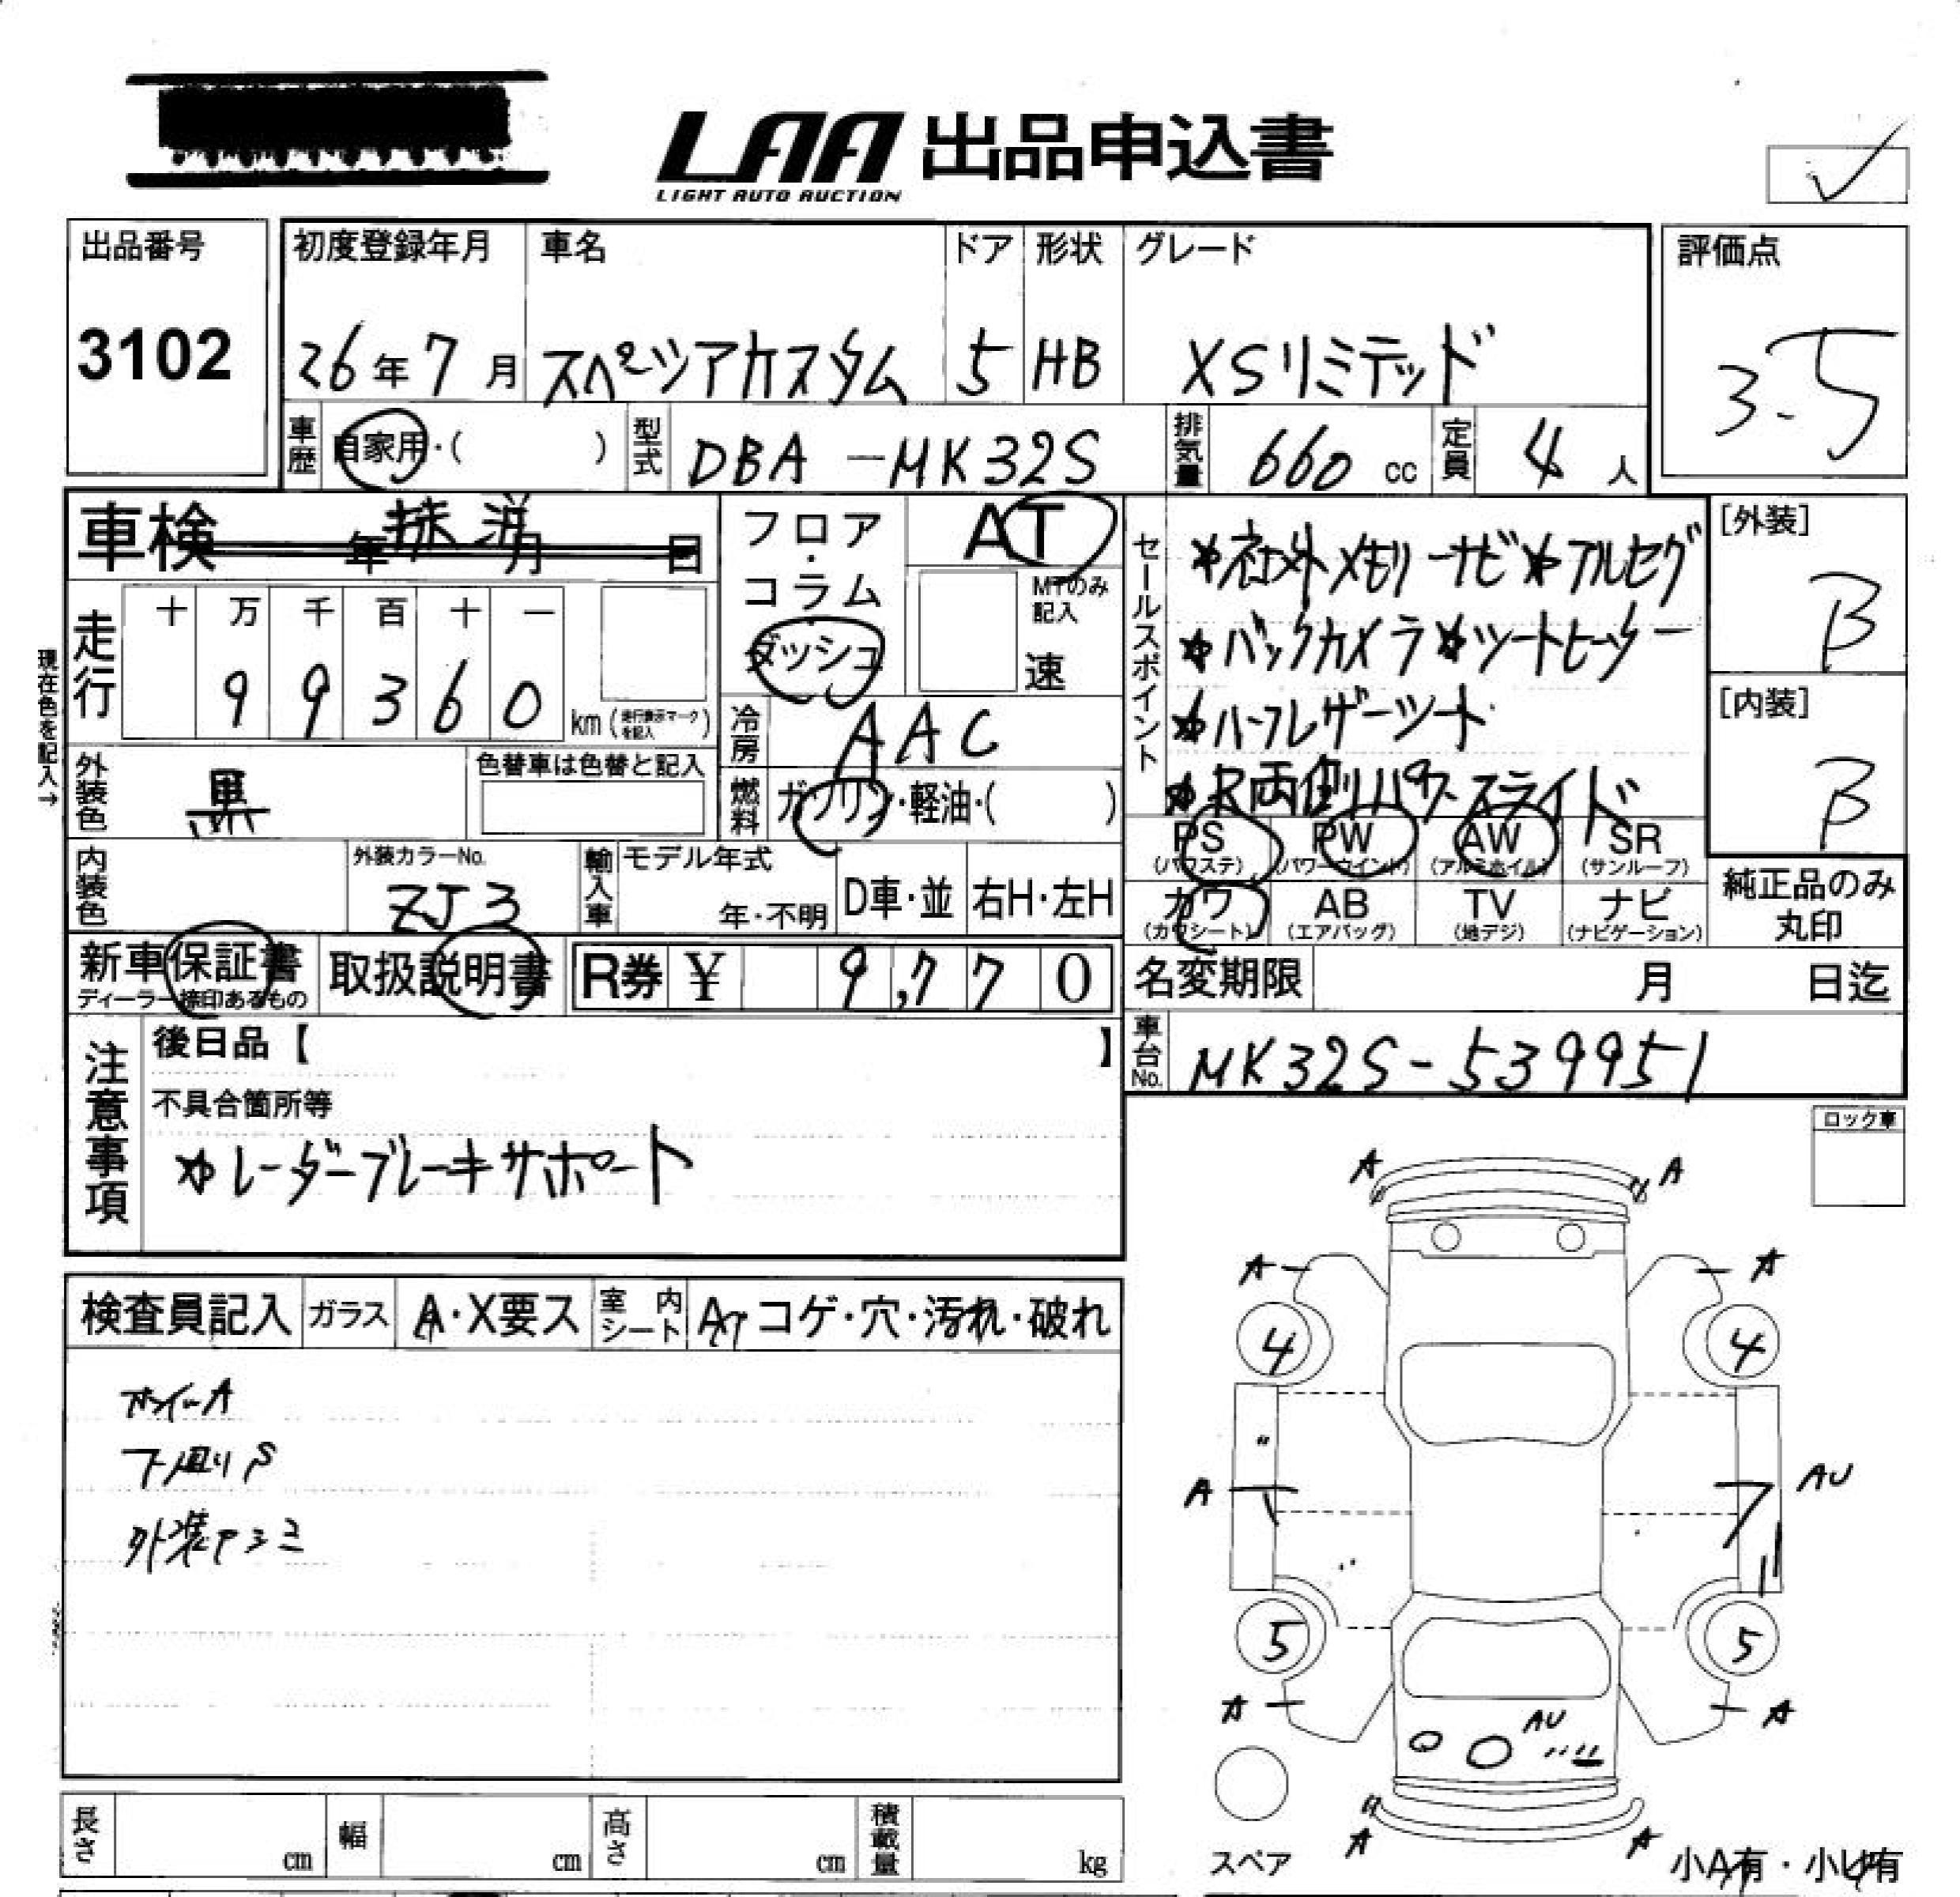 LAA 出品申込書
LIGHT AUTO AUCTION
出品番号
3102
初度登録年月
26年7月
車名
スペーシアカスタム
ドア
5
形状
HB
グレード
XSリミテッド
評価点
3.5
車歴
自家用・( )
型式
DBA-MK32S
排気量
660 cc
定員
4 人
車検 年 月 日
抹消
走行
十 万 千 百 十 一
9 9 3 6 0 km (走行表示マークを記入)
現在色を記入→
外装色
黒
色替車は色替と記入
内装色
外装カラーNo.
ZJ3
輸入車
モデル年式
年・不明
D車・並
右H・左H
フロア・コラム・ダッシュ
AT
MTのみ記入
速
冷房
AAC
燃料
ガソリン・軽油・( )
セールスポイント
☆社外メモリーナビ☆フルセグ
☆バックカメラ☆シートヒーター
☆ハーフレザーシート
☆両側パワースライド
[外装]
B
[内装]
B
PS (パワステ)
PW (パワーウインド)
AW (アルミホイル)
SR (サンルーフ)
カワ (カワシート)
AB (エアバッグ)
TV (地デジ)
ナビ (ナビゲーション)
純正品のみ
丸印
新車保証書
ディーラー捺印あるもの
取扱説明書
R券 ¥ 9,770
名変期限 月 日迄
車台No.
MK32S-539951
注意事項
後日品【 】
不具合箇所等
☆レーダーブレーキサポート
ロック車
検査員記入
ガラス
A・X要ス
室内シート
A・コゲ・穴・汚れ・破れ
ホイールA
下廻りS
外装
A A
A A
4 4
A AU
5 5
A A
AU
A A
スペア
小A有・小U有
長さ cm
幅 cm
高さ cm
積載量 kg